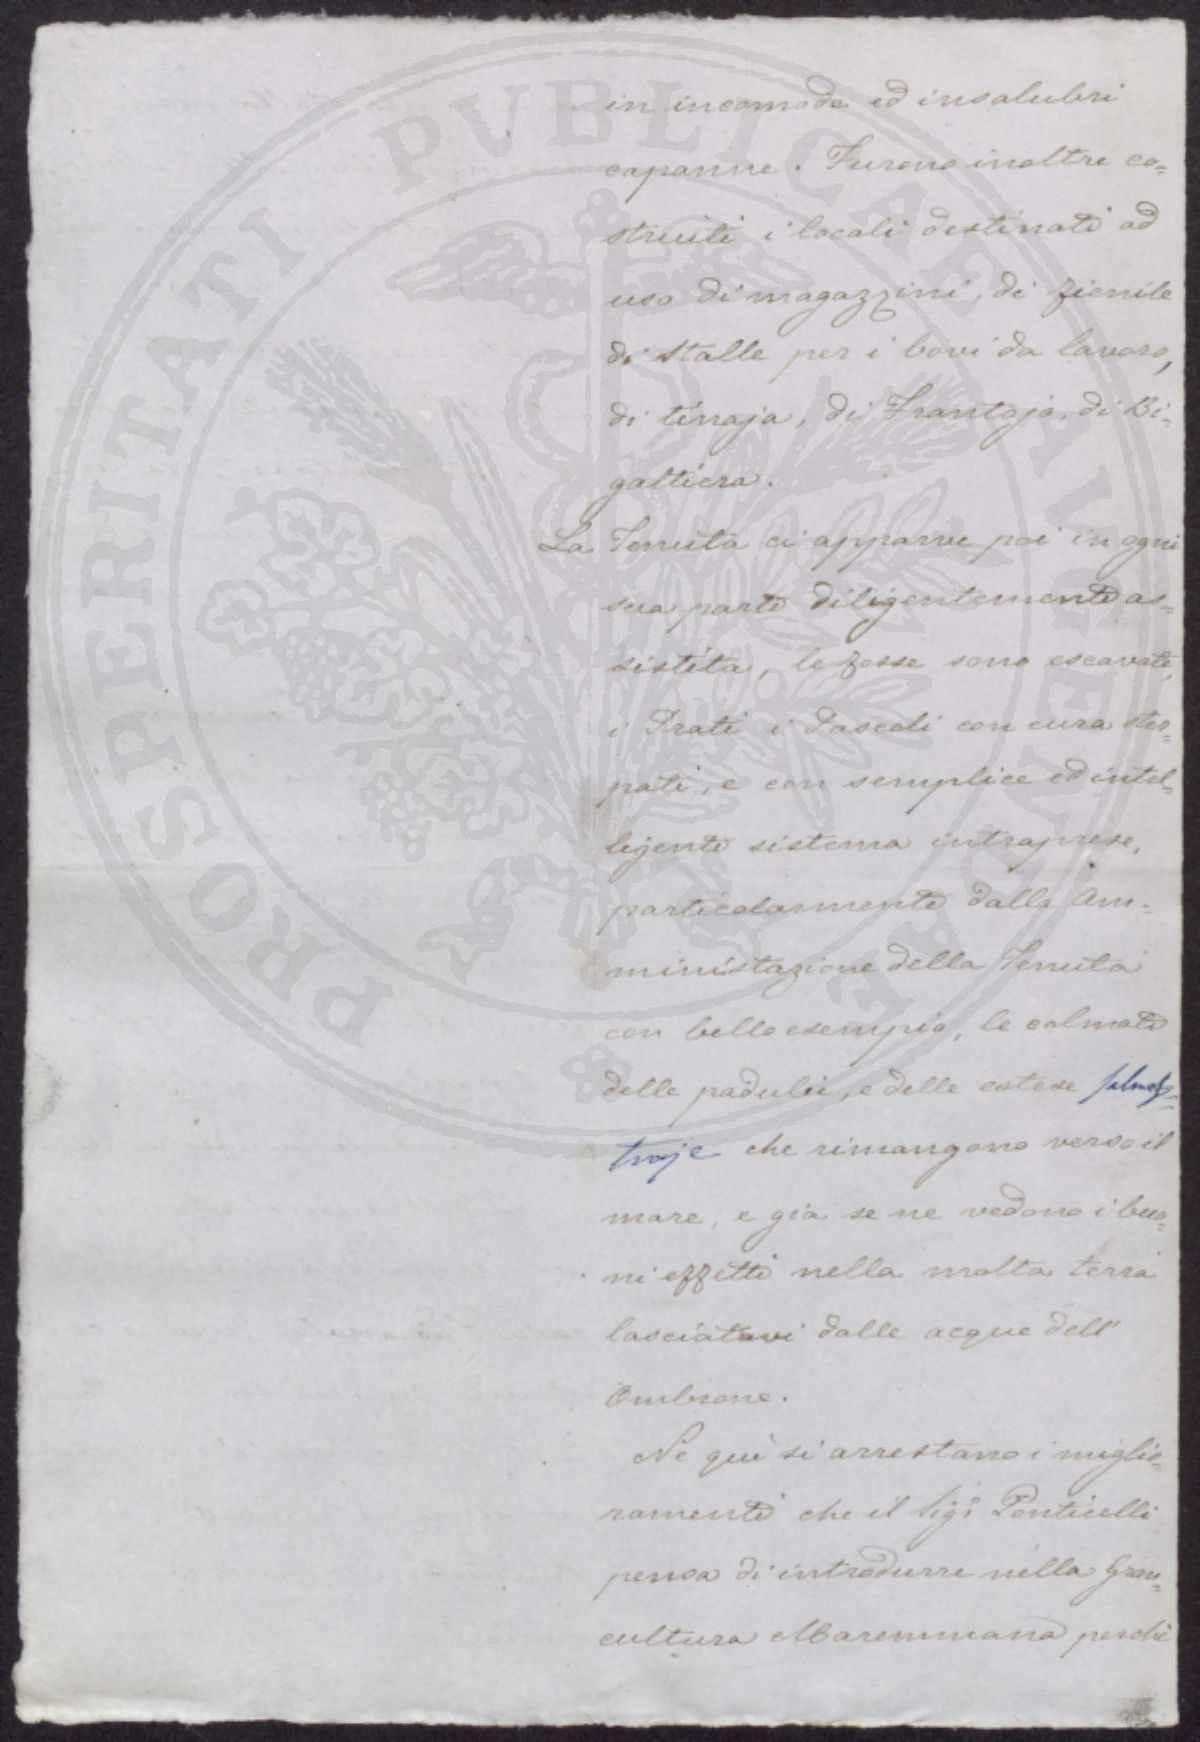 in incomode ed insalubri
capanne. Furono inoltre co=
struiti i locali destinati ad
uso di magazzini, di fienile
di stalle per i bovi da lavoro,
di tinaja, di Frantojo, di Bi=
gattiera.
La Tenuta ci apparve poi in ogni
sua parte diligentemente as=
sistita, le fosse sono escavate,
i Prati i Pascoli con cura ster=
pati, e con semplice ed intel=
ligente sistema intraprese,
particolarmente dalla Am=
ministazione della Tenuta
con bello esempio, le colmate
delle paduli, e delle estese
che rimangono verso il
mare, e gia se ne vedono i buo=
ni effetti nella molta terra
lasciatavi dalle acque dell'
Ombrone.
Ne qui si arrestano i miglio=
ramenti che il Sigr Ponticelli
pensa di introdurre nella Gran=
cultura Maremmana perchè
PROSPERITATI PVBLICAE AVGENDAE